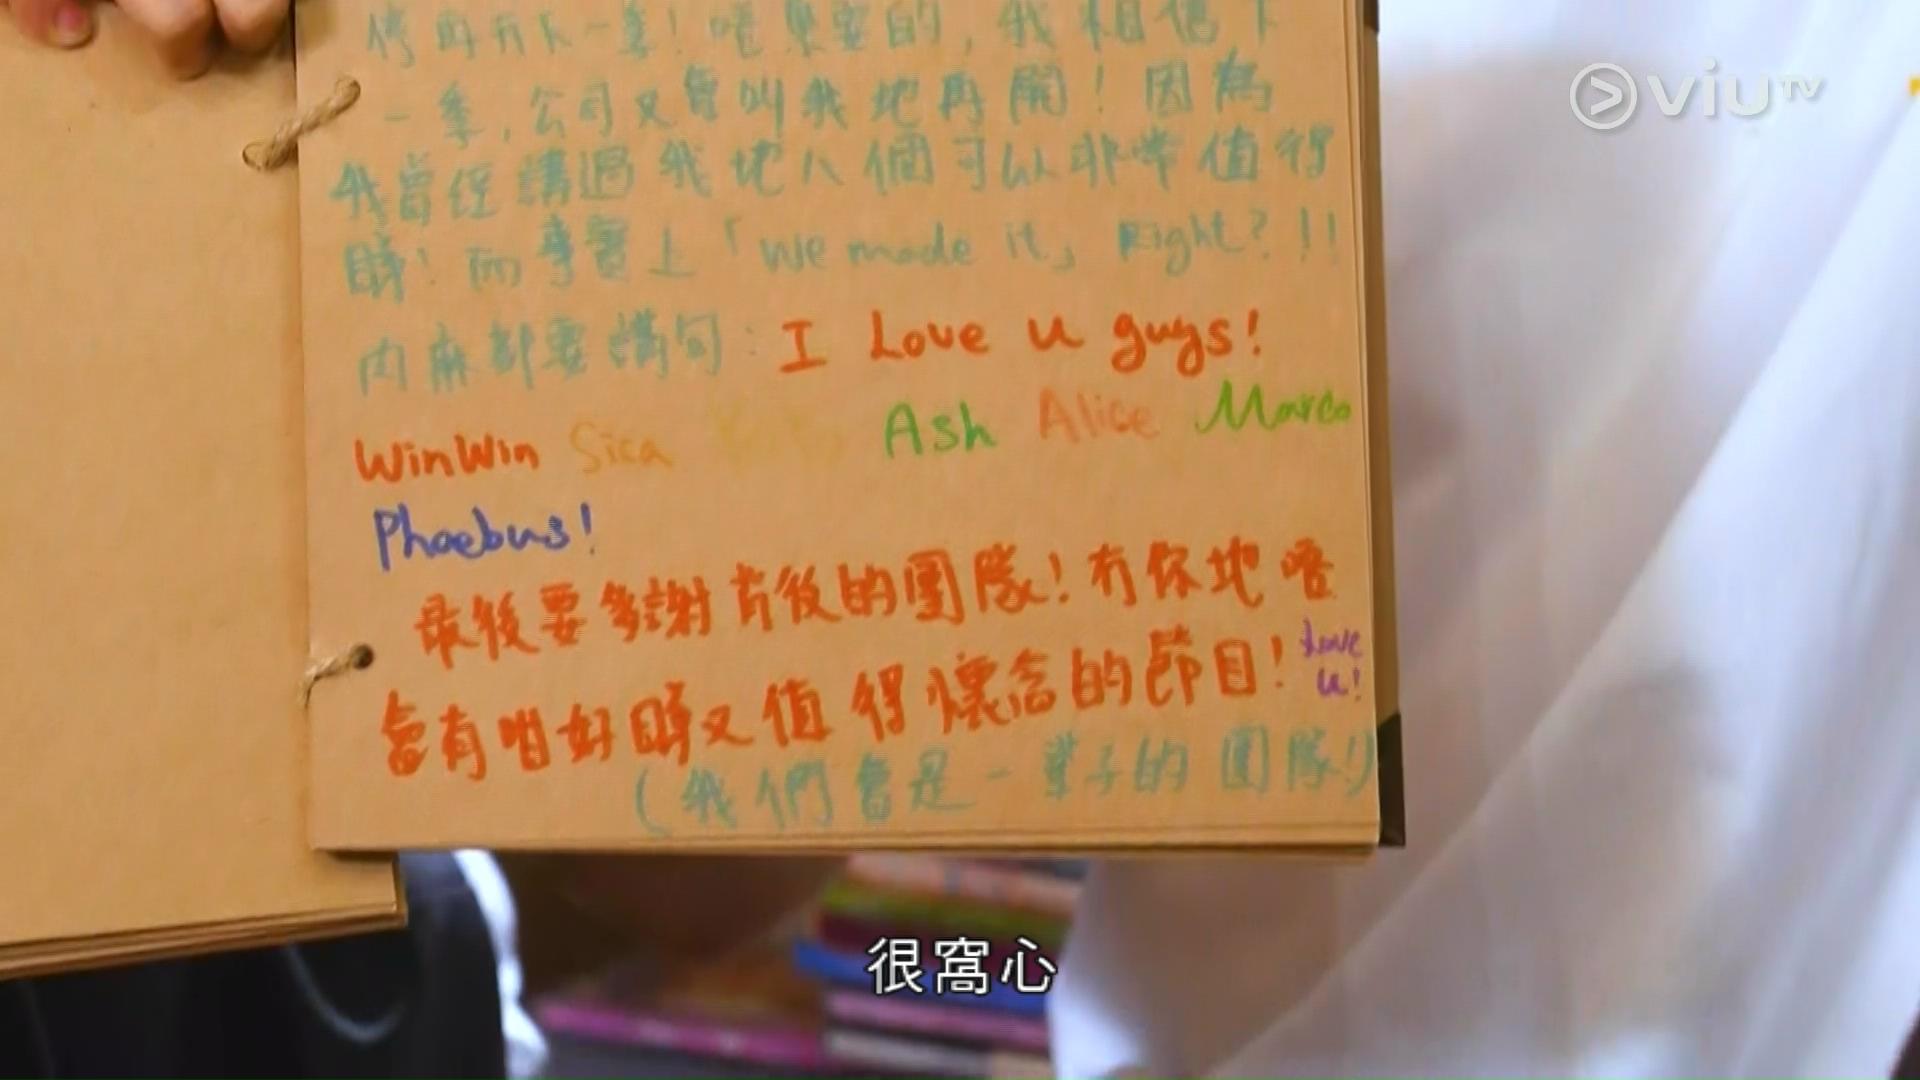 viuTV
一季,公司又會叫我地再開!因為
我曾經講過我地八個可以非常值得
睇!而事實上「we made it」Right?!!
肉麻都要講句:I Love u guys!
WinWin Sica Ash Alice Marco
Phoebus!
最後要多謝背後的團隊!冇你地唔
會有咁好睇又值得懷念的節目!Love u!
(我們會是一輩子的團隊!)
很窩心